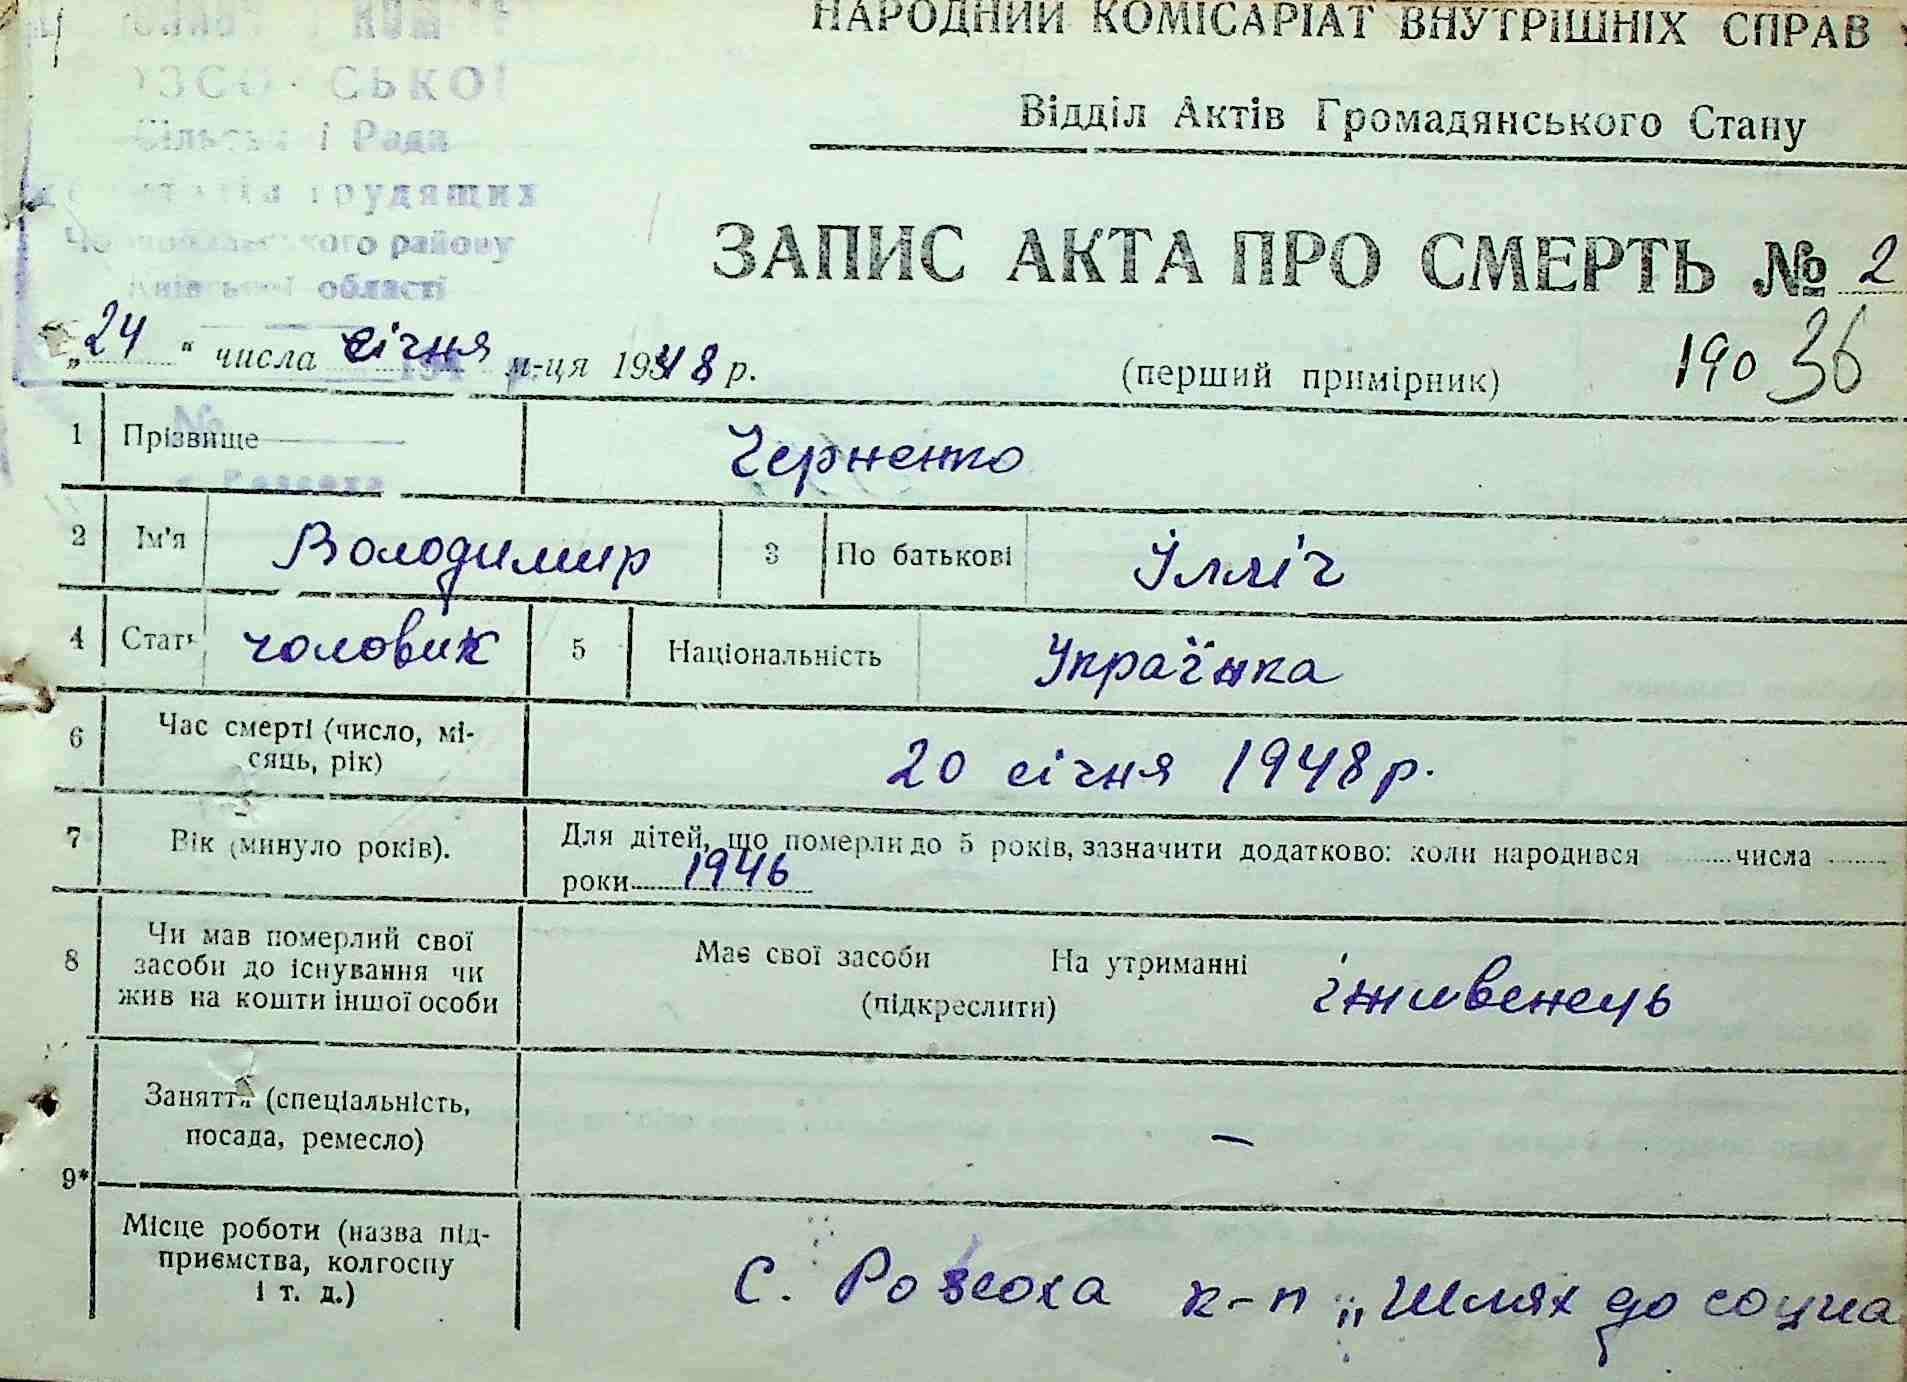 НАРОДНИЙ КОМІСАРІАТ ВНУТРІШНІХ СПРАВ
Відділ Актів Громадянського Стану
СЬКОЇ
і Рада
трудящих
району
області
ЗАПИС АКТА ПРО СМЕРТЬ № 2
„24“ числа січня м-ця 1948 р.
(перший примірник)
190 36
1 Прізвище Черненко
№
с. Розсоха
2 Ім'я Володимир 3 По батькові Ілліч
4 Стать чоловик 5 Національність Українка
6 Час смерті (число, мі-
сяць, рік) 20 січня 1948 р.
7 Вік (минуло років). Для дітей, що померли до 5 років, зазначити додатково: коли народився ........числа ........
роки 1946
8 Чи мав померлий свої
засоби до існування чи
жив на кошти іншої особи
Має свої засоби На утриманні іживенець
(підкреслити)
9*
Заняття (спеціальність,
посада, ремесло) –
Місце роботи (назва під-
приємства, колгоспу
і т. д.)
С. Розсоха к-п „Шлях до соціа